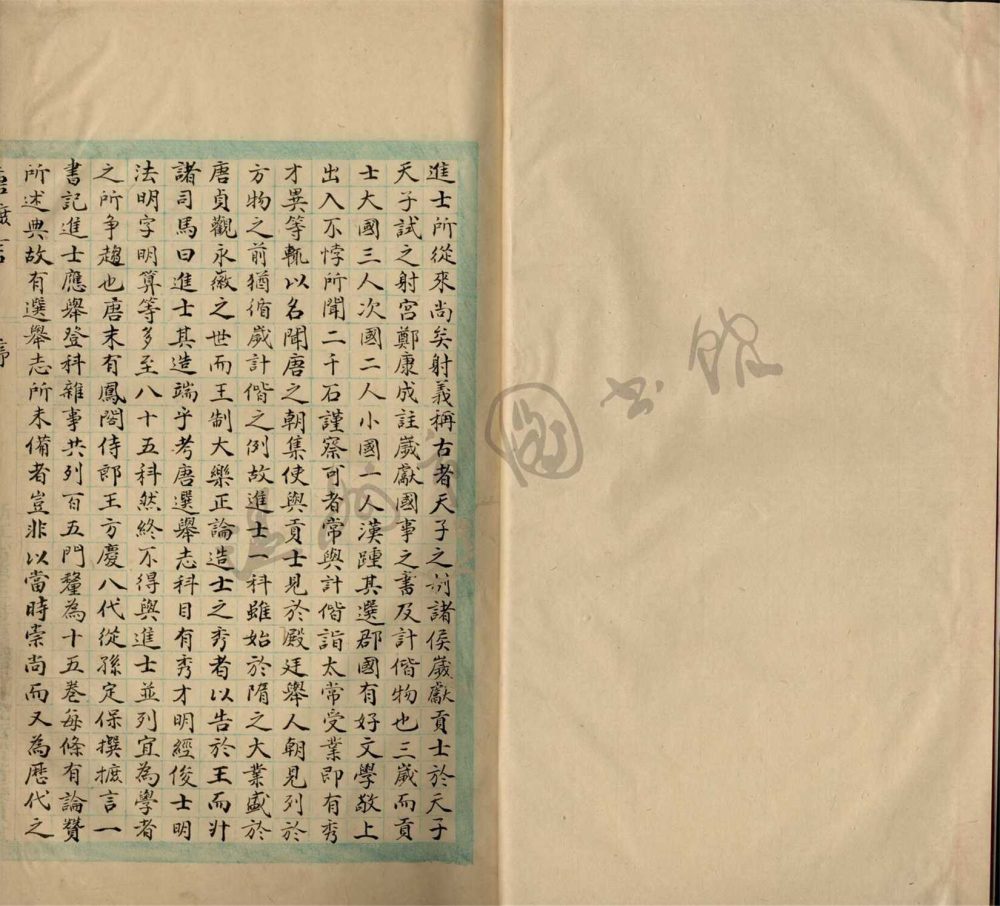 進士所從來尚矣射義稱古者天子之制諸侯嵗獻貢士於天子
天子試之射宮鄭康成註嵗獻國事之書及計偕物也三嵗而貢
士大國三人次國二人小國一人漢踵其選郡國有好文學敬上
出入不悖所聞二千石謹察可者常與計偕詣太常受業即有秀
才異等輒以名聞唐之朝集使與貢士見於殿廷舉人朝見列於
方物之前猶循嵗計偕之例故進士一科雖始於隋之大業盛於
唐貞觀永徽之世而王制大樂正論造士之秀者以告於王而升
諸司馬曰進士其造端乎考唐選舉志科目有秀才明經俊士明
法明字明算等多至八十五科然終不得與進士並列宜為學者
之所争趨也唐末有鳳閣侍郎王方慶八代從孫定保撰摭言一
書記進士應舉登科雜事共列百五門釐為十五卷每條有論贊
所述典故有選舉志所未備者豈非以當時崇尚而又為歷代之
圖書館